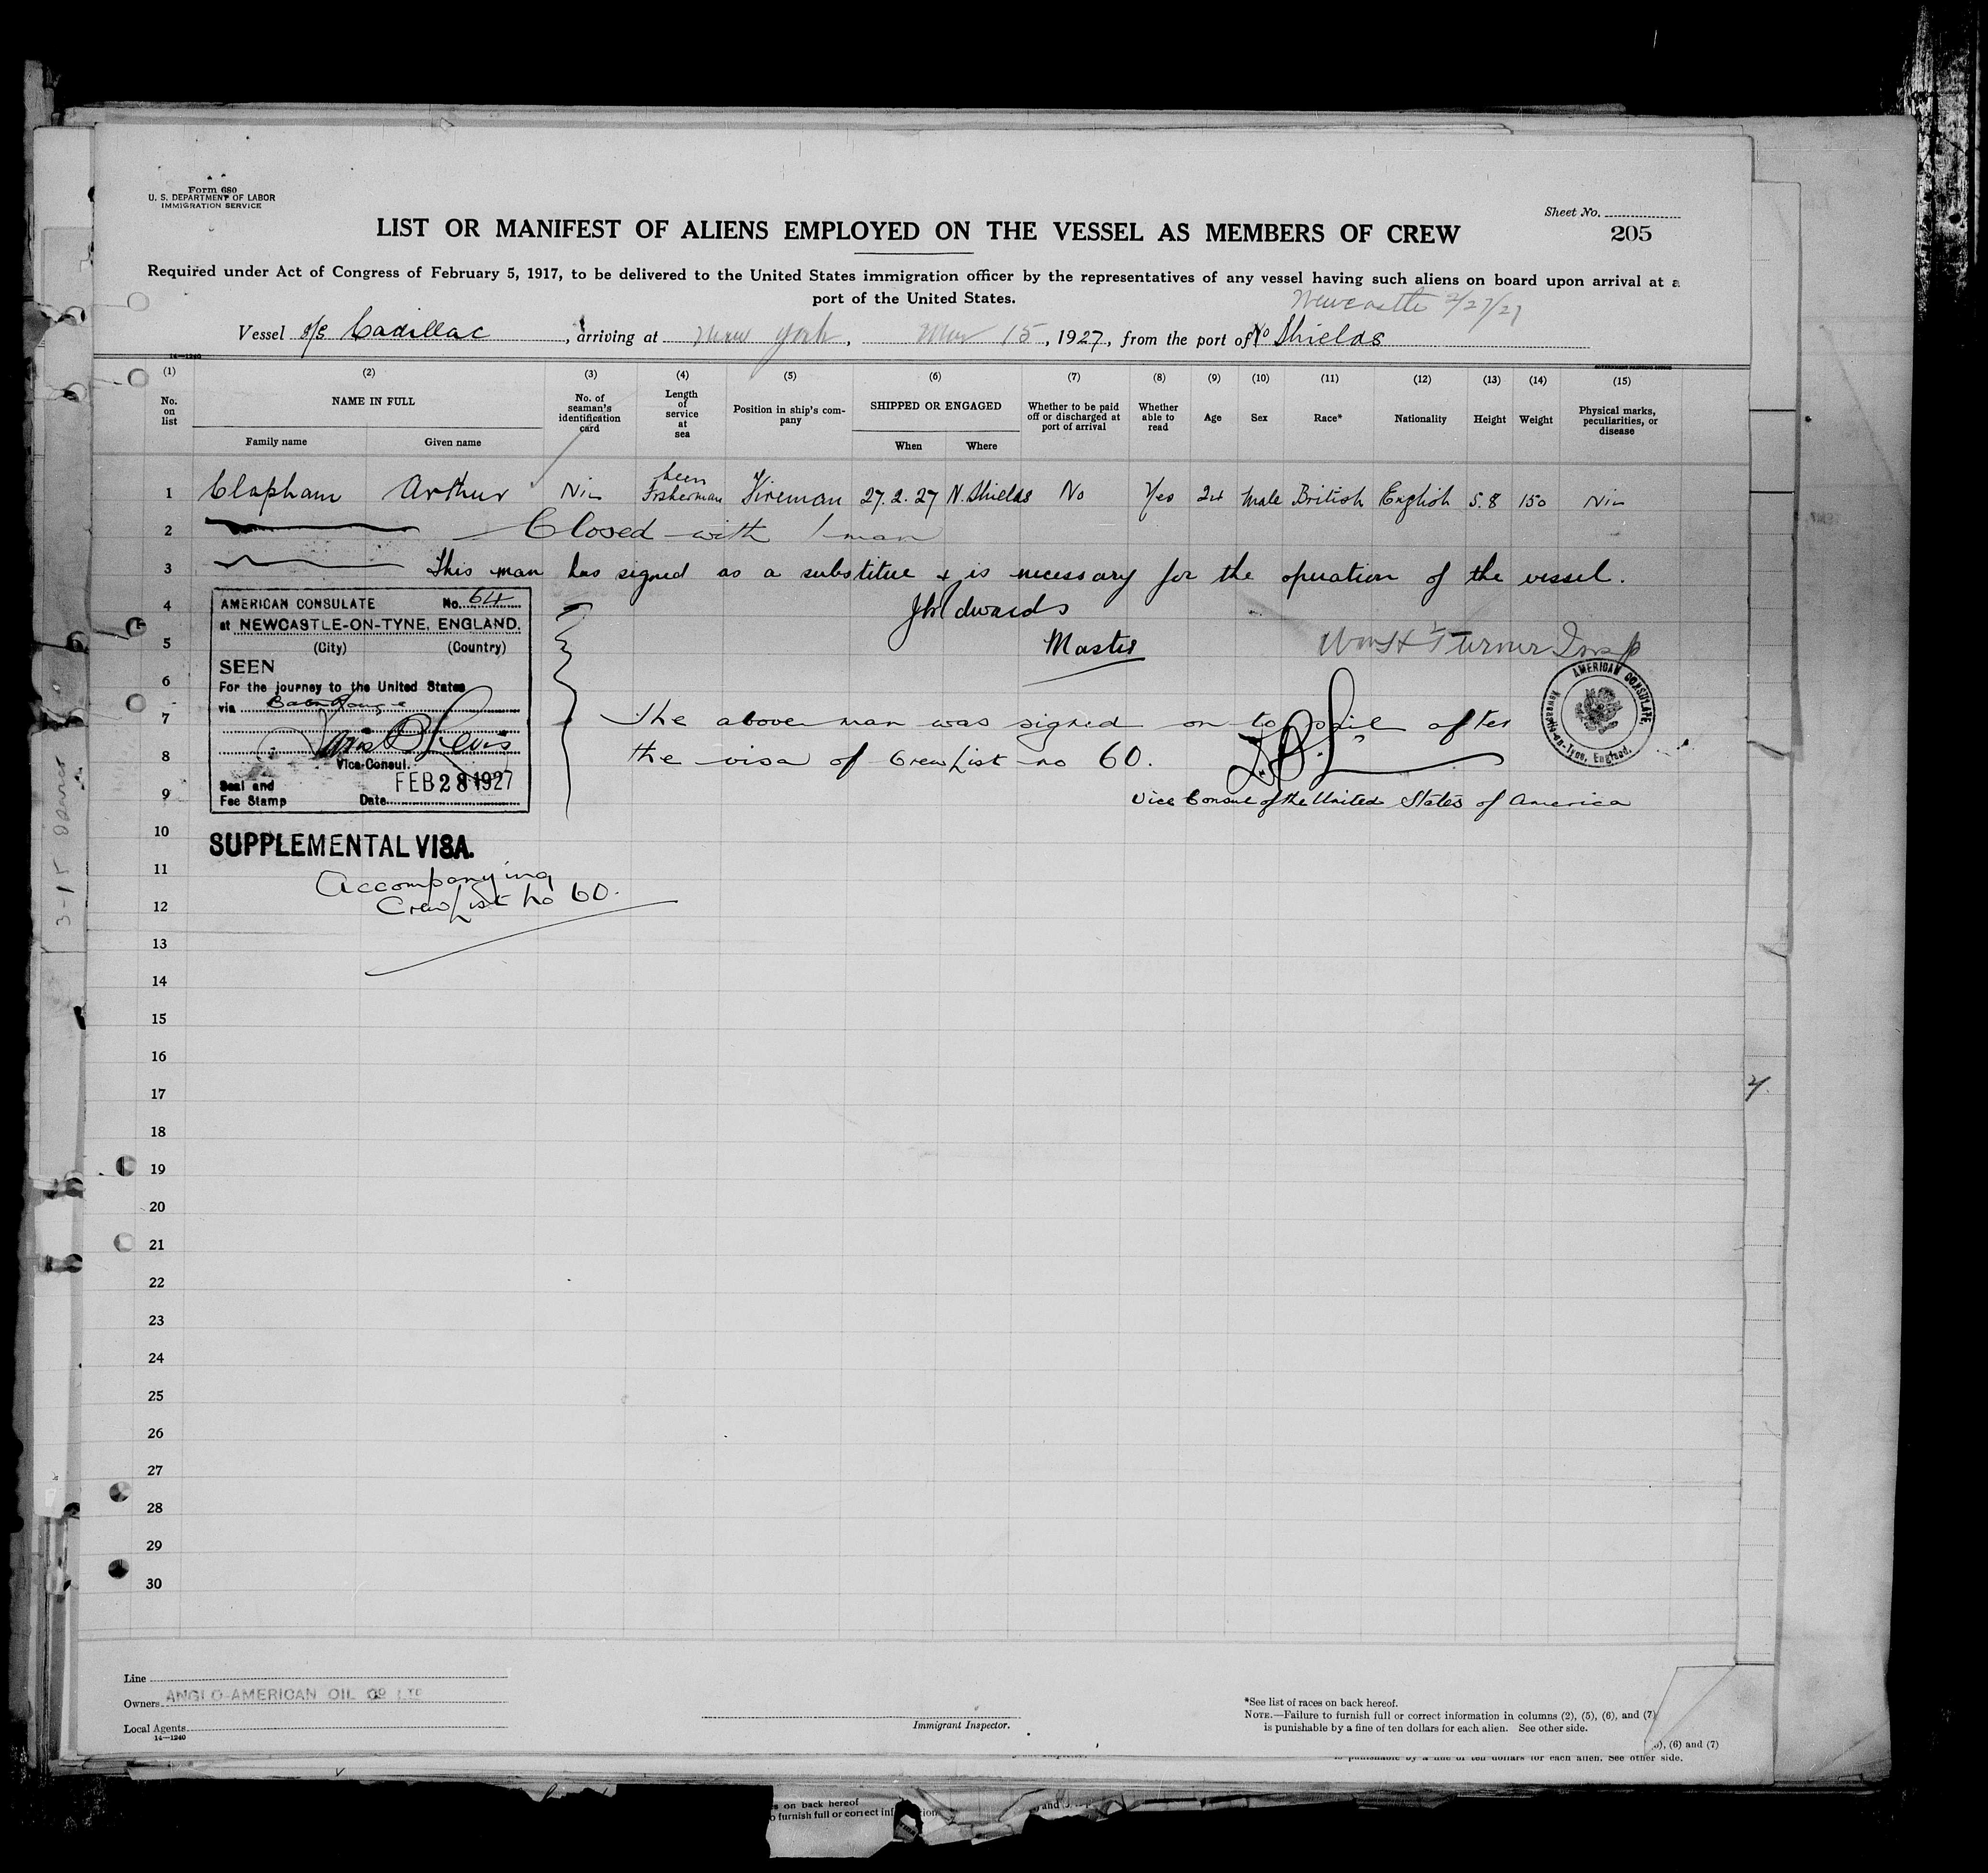 Form 680
U. S. DEPARTMENT OF LABOR
IMMIGRATION SERVICE
Sheet No.
205
LIST OR MANIFEST OF ALIENS EMPLOYED ON THE VESSEL AS MEMBERS OF CREW
Required under Act of Congress of February 5, 1917, to be delivered to the United States immigration officer by the representatives of any vessel having such aliens on board upon arrival at a
port of the United States.
Newcastle 2/27/27
Vessel s/s Cadillac, arriving at New York, Mar 15, 1927, from the port of No Shields
14—1240
(1) (2) (3) (4) (5) (6) (7) (8) (9) (10) (11) (12) (13) (14) (15)
No. on list
NAME IN FULL
Family name Given name
No. of seaman's identification card
Length of service at sea
Position in ship's company
SHIPPED OR ENGAGED
When Where
Whether to be paid off or discharged at port of arrival
Whether able to read
Age
Sex
Race*
Nationality
Height
Weight
Physical marks, peculiarities, or disease
1 Clapham Arthur Nil been Fisherman Fireman 27.2.27 N. Shields No Yes 24 Male British English 5.8 150 Nil
2 Closed with 1 man
3 This man has signed as a substitue & is necessary for the operation of the vessel.
4 Edwards
5 Master
Wm H Turner Insp
6
7 The above man was signed on to sail after
8 the visa of Crew List no 60.
9 Vice Consul of the United States of America
AMERICAN CONSULATE No. 64
at NEWCASTLE-ON-TYNE, ENGLAND.
(City) (Country)
SEEN
For the journey to the United States
via Baton Rouge
Vice-Consul.
Seal and
Fee Stamp Date FEB 28 1927
AMERICAN CONSULATE,
Newcastle-on-Tyne, England.
10 SUPPLEMENTAL VISA.
11 Accompanying
12 Crew List no 60.
13
14
15
16
17
18
19
20
21
22
23
24
25
26
27
28
29
30
Line
Owners ANGLO-AMERICAN OIL CO LTD
Local Agents
14—1240
Immigrant Inspector.
*See list of races on back hereof.
NOTE.—Failure to furnish full or correct information in columns (2), (5), (6), and (7)
is punishable by a fine of ten dollars for each alien. See other side.
(6) and (7)
is punishable by a fine of ten dollars for each alien. See other side.
on back hereof
furnish full or correct
and